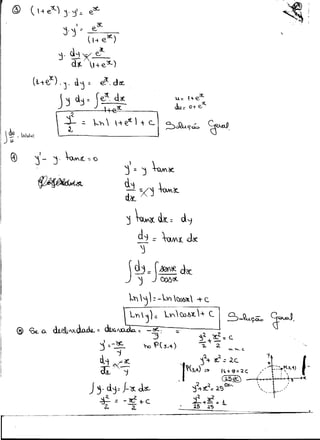 ③ (1+eˣ) y y' = eˣ
y y' = eˣ / (1+eˣ)
y · dy/dx = eˣ / (1+eˣ)
(1+eˣ) · y · dy = eˣ · dx
∫ y dy = ∫ eˣ dx / (1+eˣ)
u = 1+eˣ
du = 0+eˣ
y²/2 = Ln|1+eˣ| + C
Solução Geral
④ y' - y · tanx = 0
y' = y tanx
dy/dx = y tanx
y tanx dx = dy
dy/y = tanx dx
∫ dy/y = ∫ senx dx / cosx
Ln|y| = -Ln|cosx| + C
Ln|y| = Ln|cosx| + C
Solução Geral
Se a
y' = -x/y
no P(3,4)
dy/dx = -x/y
∫ y · dy = ∫ -x dx
y²/2 = -x²/2 + C
y²/2 + x²/2 = C
y² + x² = 2C
P(3,4) ⇒ 16+9 = 2C
25 = 2C
y² + x² = 25
y²/25 + x²/25 = 1
P(3,4)